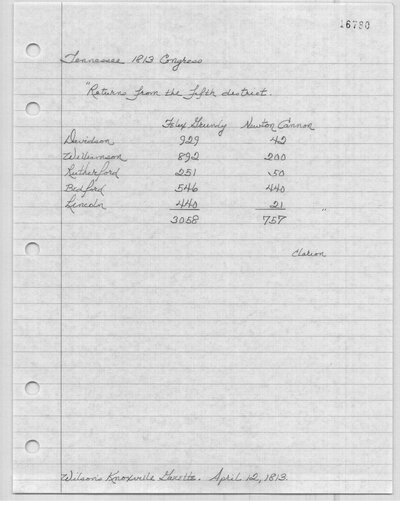 16780
Tennessee 1813 Congress
"Returns from the fifth district.
Felix Grundy Newton Cannon
Davidson 929 42
Williamson 892 200
Rutherford 251 50
Bedford 546 440
Lincoln 440 21
3058 757 "
Clarion
Wilson's Knoxville Gazette. April 12, 1813.